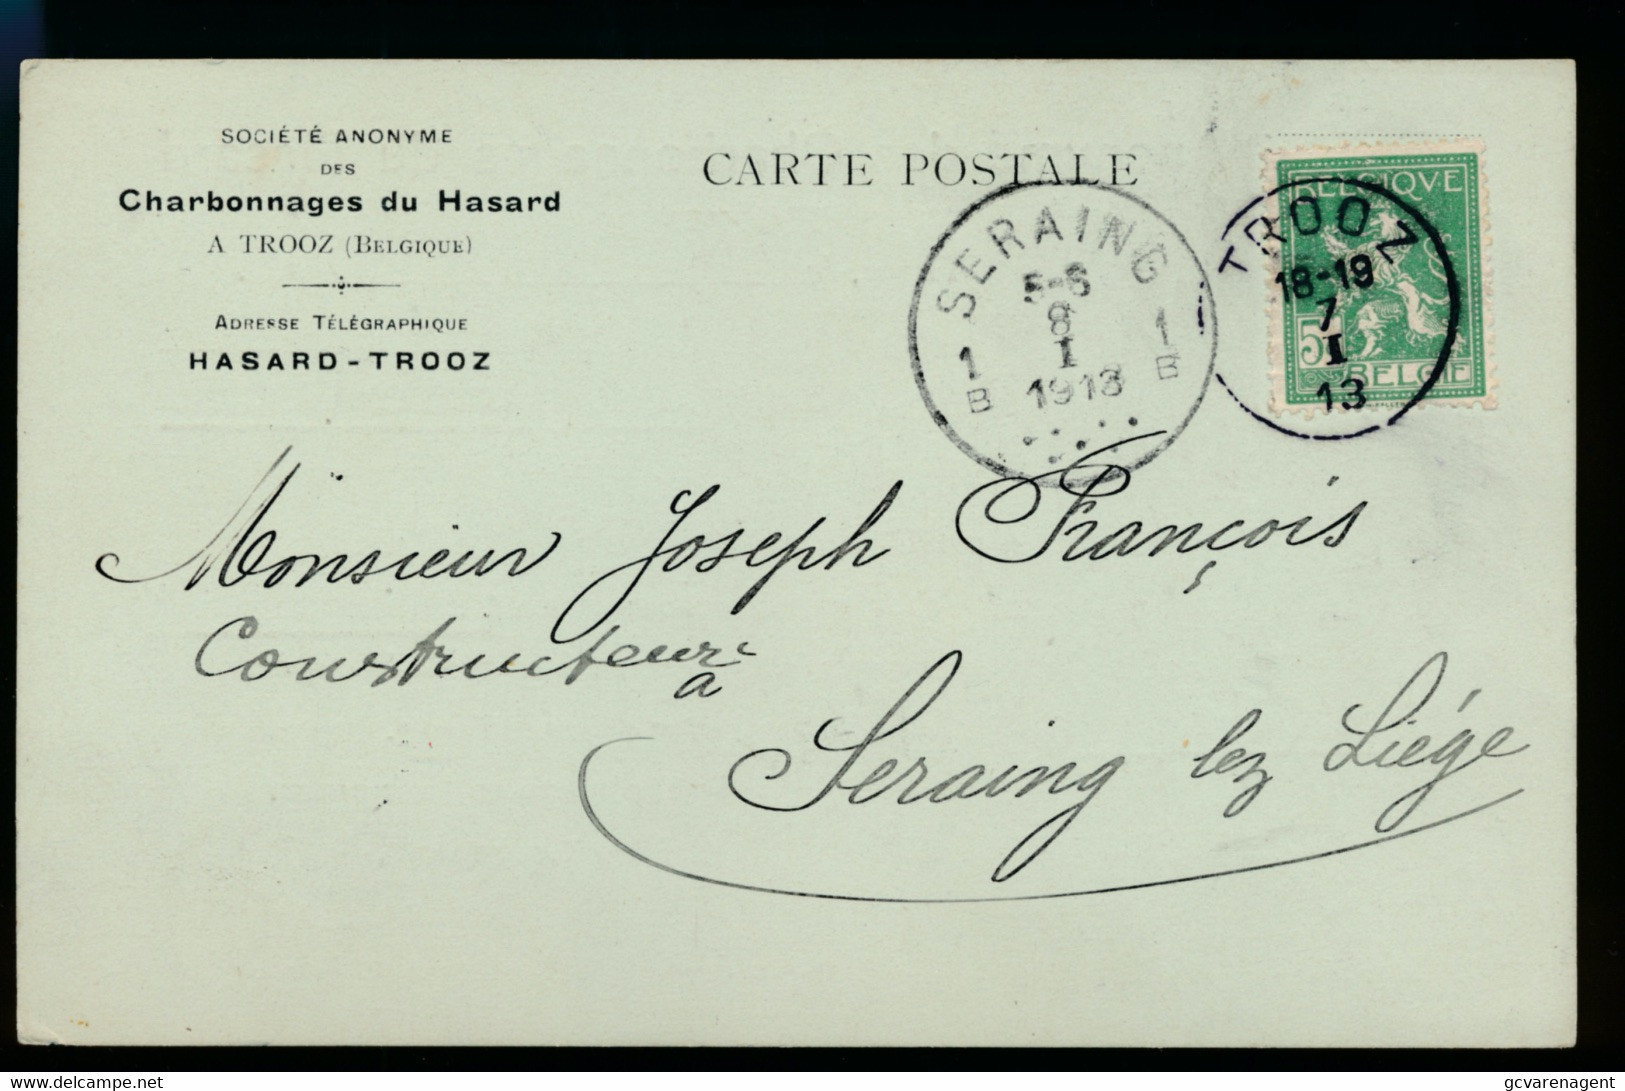 SOCIÉTÉ ANONYME
DES
Charbonnages du Hasard
A TROOZ (BELGIQUE)
ADRESSE TÉLÉGRAPHIQUE
HASARD-TROOZ
CARTE POSTALE
SERAING
5-6
8
I
1913
1 1
B B
BELGIQVE
5
BELGIE
TROOZ
18-19
7
I
13
Monsieur Joseph François
Constructeur
à
Seraing lez Liége
delcampe.net
gcvarenagent